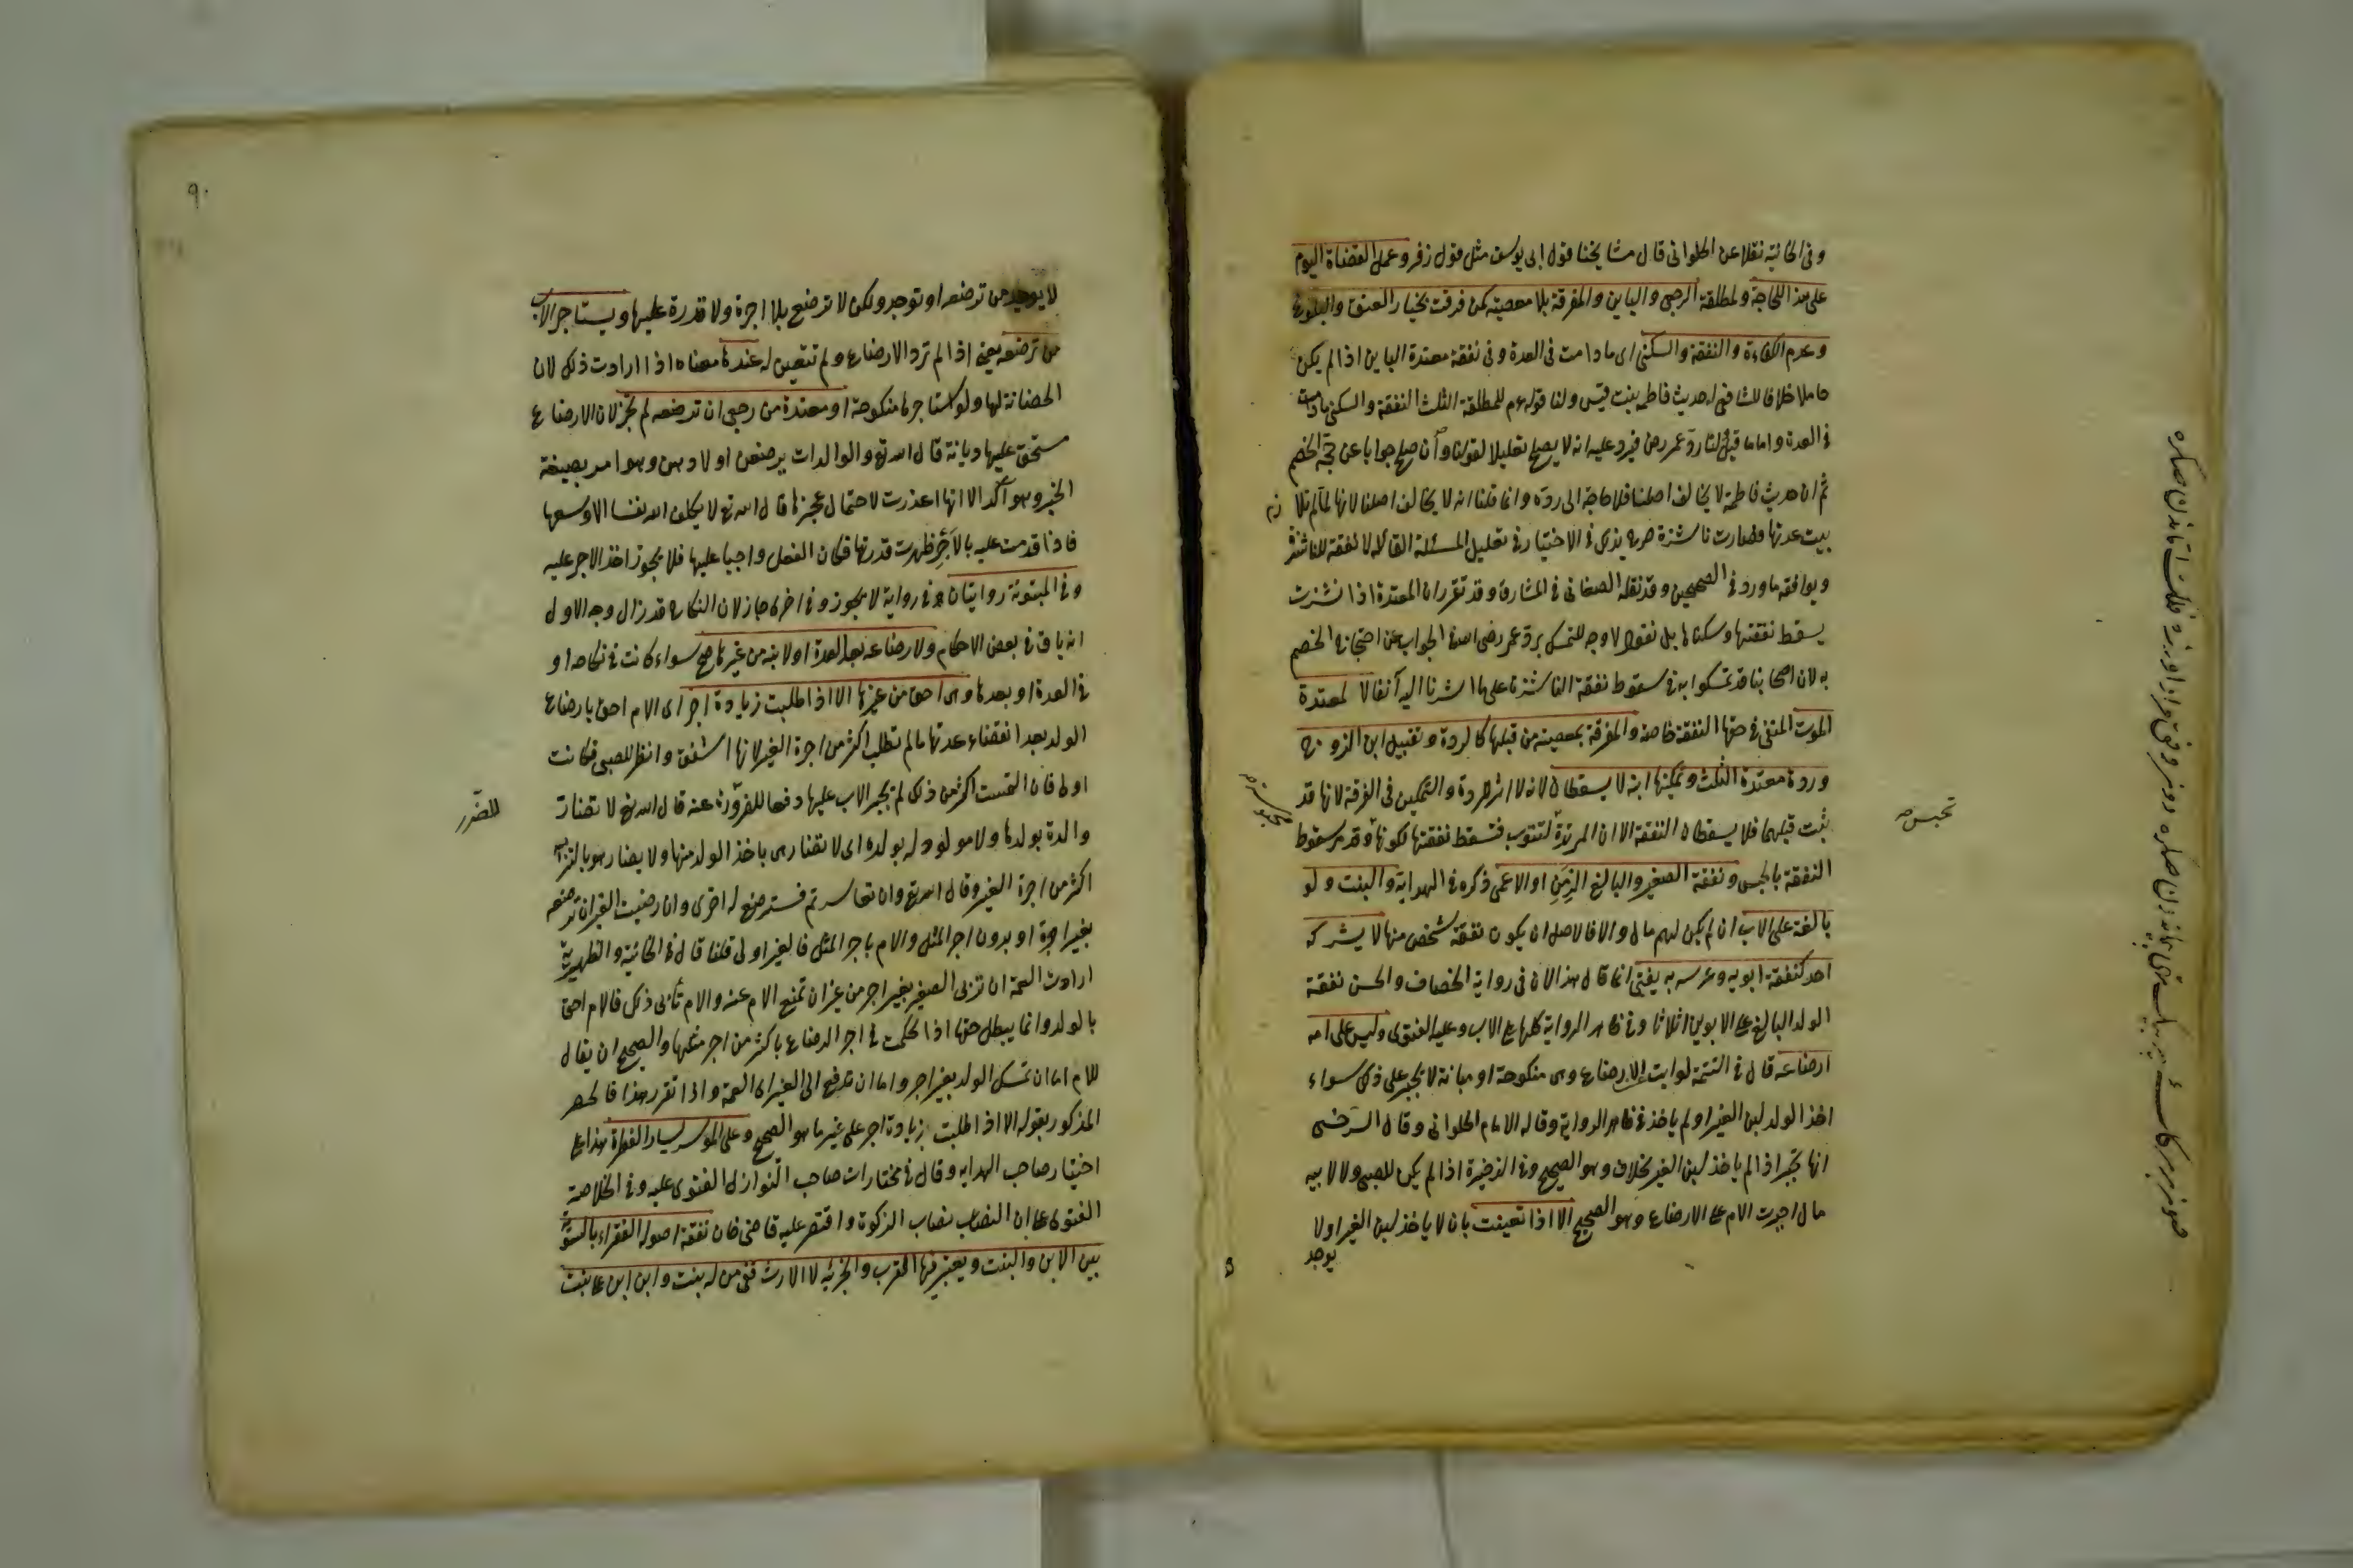 وفى الخانية نقلا عن الحلوانى قال مشايخنا قول ابى يوسف مثل قول زفر وعمل القضاة اليوم
على هذا للحاجة ولمطلقة الرجعى والباين والمفرقة بلا معصية كمن فرقت بخيار العتق والبلوغ
وعدم الكفاءة والنفقة والسكنى اى ما دامت فى العدة وفى نفقة معتدة الباين اذا لم يكن
حاملا خلافا للشافعى له حديث فاطمة بنت قيس ولنا قوله عم للمطلقة الثلث النفقة والسكنى ما دامت
فى العدة واما ما قيل لنا رد عمر رض فيرد عليه انه لا يصلح تعليلا لقولنا وان صلح جوابا عن حجة الخصم
ثم ان حديث فاطمة لا يخالف اصلنا فلا حاجة الى رده وانما قلنا انه لا يخالف اصلنا لانها لم تلازم
بيت عدتها فصارت ناشزة صرح بذى فى الاختيار فى تعليل المسئلة القائلة لا نفقة للناشزة
ويوافقه ما ورد فى الصحيحين وقد نقله الصغانى فى المشارق وقد تقرر ان المعتدة اذا نشزت
يسقط نفقتها وسكناها بل نقول لا وجه للتمسك برد عمر رضى الله فى الجواب عن احتجاج الخصم
به لان اصحابنا قد تمسكوا به فى سقوط نفقة الناشزة على ما اشرنا اليه آنفا لا لمعتدة
الموت المنفى فى حقها النفقة خاصة والمفرقة بمعصية من قبلها كالردة وتقبيل ابن الزوج
وردة معتدة الثلث وتمكينها ابنه لا يسقطان لانه لا اثر للردة والتمكين فى الفرقة لانها قد
ثبت قبلهما فلا يسقطان النفقة الا ان المرتدة لتتوب فتسقط نفقتها لكونها وقد مر سقوط
النفقة بالحبس ونفقة الصغير والبالغ الزمن او الاعمى ذكره فى الهداية والبنت ولو
بالغة على الاب ان لم يكن لهم مال والا فالاصل ان يكون نفقة شخص منها لا يشركه
احد كنفقة ابويه وعرسه به يفتى انما قال هذا لان فى رواية الخصاف والحسن نفقة
الولد البالغ على الابوين اثلاثا وفى ظاهر الرواية كلها على الاب وعليه الفتوى وليس على امه
ارضاعه قال فى التتمة لو ابت الارضاع وهى منكوحة او مبانة لا تجبر على ذلك سواء
اخذ الولد لبن الغير او لم ياخذ فى ظاهر الرواية وقاله الامام الحلوانى وقال السرخسى
انها تجبر اذا لم ياخذ لبن الغير بلا خلاف وهو الصحيح وفى الذخيرة اذا لم يكن للصبى ولا لابيه
مال اجبرت الام على الارضاع وهو الصحيح الا اذا تعينت بان لا ياخذ لبن الغير او لا
يوجد
تحبس صح
٩٠
لا يوجد من ترضعه او توجد ولكن لا ترضع بلا اجرة ولا قدرة عليها ويستاجر الاب
من ترضعه يعنى اذا لم ترد الارضاع ولم تتعين له عندها معناه اذا ارادت ذلك لان
الحضانة لها ولو استاجرها منكوحة او معتدة من رجعى ان ترضعه لم تجز لان الارضاع
مستحق عليها ديانة قال الله تع والوالدات يرضعن اولادهن وهو امر بصيغة
الخبر وهو آكد الا انها اعذرت لاحتمال عجزها قال الله تع لا يكلف الله نفسا الا وسعها
فاذا قدمت عليه بالاجر ظهرت قدرتها فكان الفعل واجبا عليها فلا يجوز اخذ الاجر عليه
وفى المبتوتة روايتان فى رواية لا يجوز وفى اخرى جاز لان النكاح قد زال وجه الاول
انه باق فى بعض الاحكام ولارضاعه بعد العدة او لابنه من غيرها صح سواء كانت فى نكاحه او
فى العدة او بعدها وهى احق من غيرها الا اذا طلبت زيادة اجر اى الام احق بارضاع
الولد بعد انقضاء عدتها ما لم تطلب اكثر من اجرة الغير لانها اشفق وانظر للصبى فكانت
اولى فان التمست اكثر من ذلك لم يجبر الاب عليها دفعا للضرر عنه قال الله تع لا تضار
والدة بولدها ولا مولود له بولده اى لا تضار هى باخذ الولد منها ولا يضار هو بالتزامه
اكثر من اجرة الغير وقال الله تع وان تعاسرتم فسترضع له اخرى وان رضيت الغير ان ترضعه
بغير اجرة او بدون اجر المثل والام باجر المثل فالغير اولى قلنا قال فى الخانية والظهيرية
ارادت العمة ان تربى الصغير بغير اجر من غير ان تمنع الام عنه والام تأبى ذلك فالام احق
بالولد وانما يبطل حقها اذا تحكمت فى اجر الرضاع باكثر من اجر مثلها والصحيح ان يقال
للام اما ان تمسك الولد بغير اجر واما ان تدفع الى الغير اى العمة واذا تقرر هذا فالحصر
المذكور بقوله الا اذا طلبت زيادة اجر على غير ما هو الصحيح وعلى الموسر يسار الفطرة هذا على
اختيار صاحب الهداية وقال فى مختارات صاحب النوازل الفتوى عليه وفى الخلاصة
الفتوى على ان النصاب نصاب الزكوة واقتصر عليه قاضى خان نفقة اصوله الفقراء بالسوية
بين الابن والبنت ويعتبر فيها القرب والجزئية لا الارث ففى من له بنت وابن ابن على بنت
للضرر